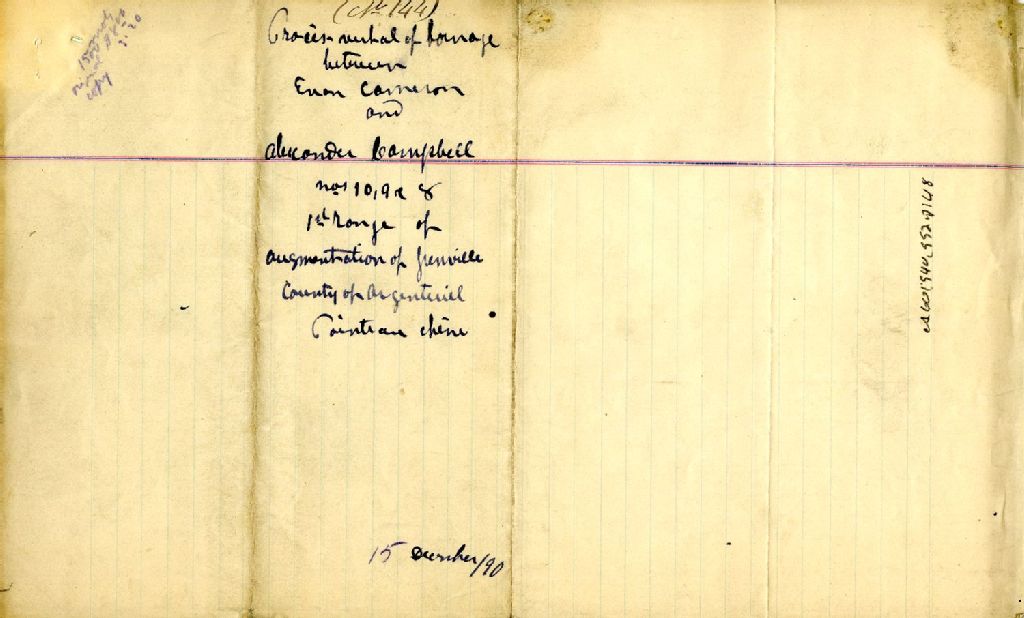 (No 144)
Procès-verbal of bornage
between
Evan Cameron
and
Alexander Campbell
nos 10, 9 &
1st Range of
augmentation of Grenville
County of Argenteuil
Pointe au chêne
15 December/90
copy